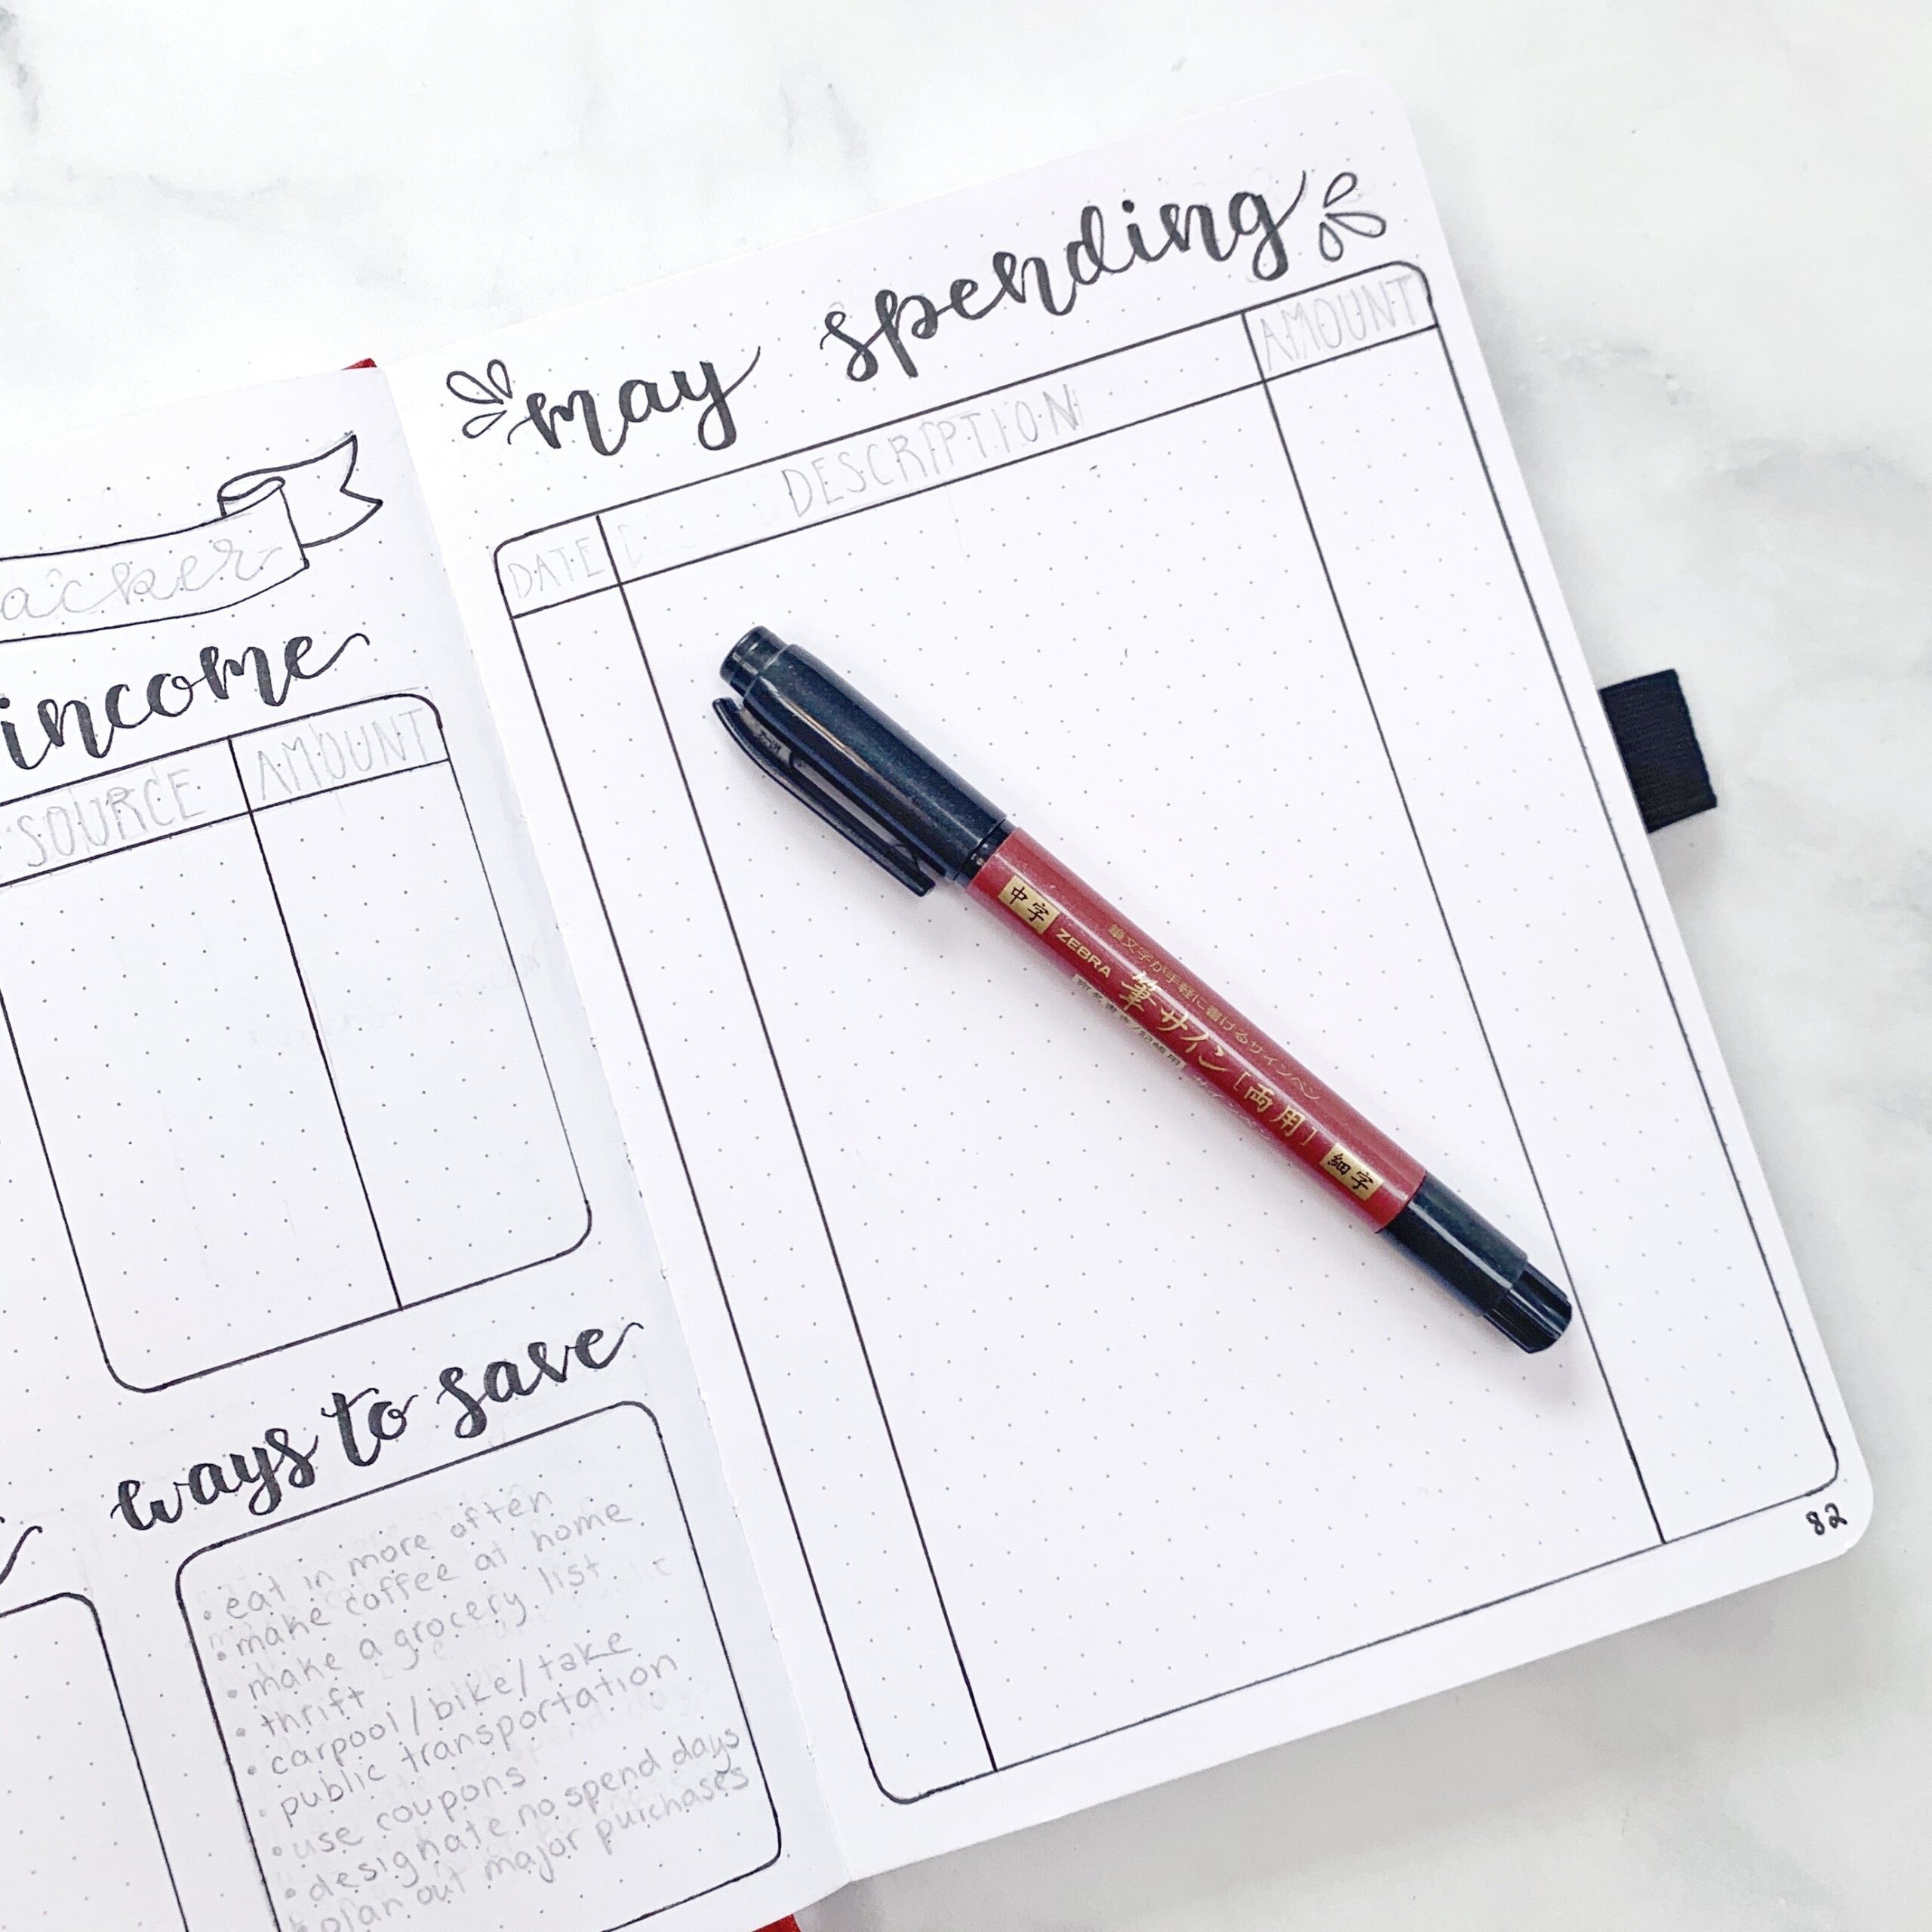 acker
income
SOURCE AMOUNT
ways to save
• eat in more often
• make coffee at home
• make a grocery list
• thrift
• carpool/bike/take
public transportation
• use coupons
• designate no spend days
• plan out major purchases
may spending
DATE DESCRIPTION AMOUNT
中字 ZEBRA 筆サイン [両用] 細字
筆文字が手軽に書けるサインペン
82